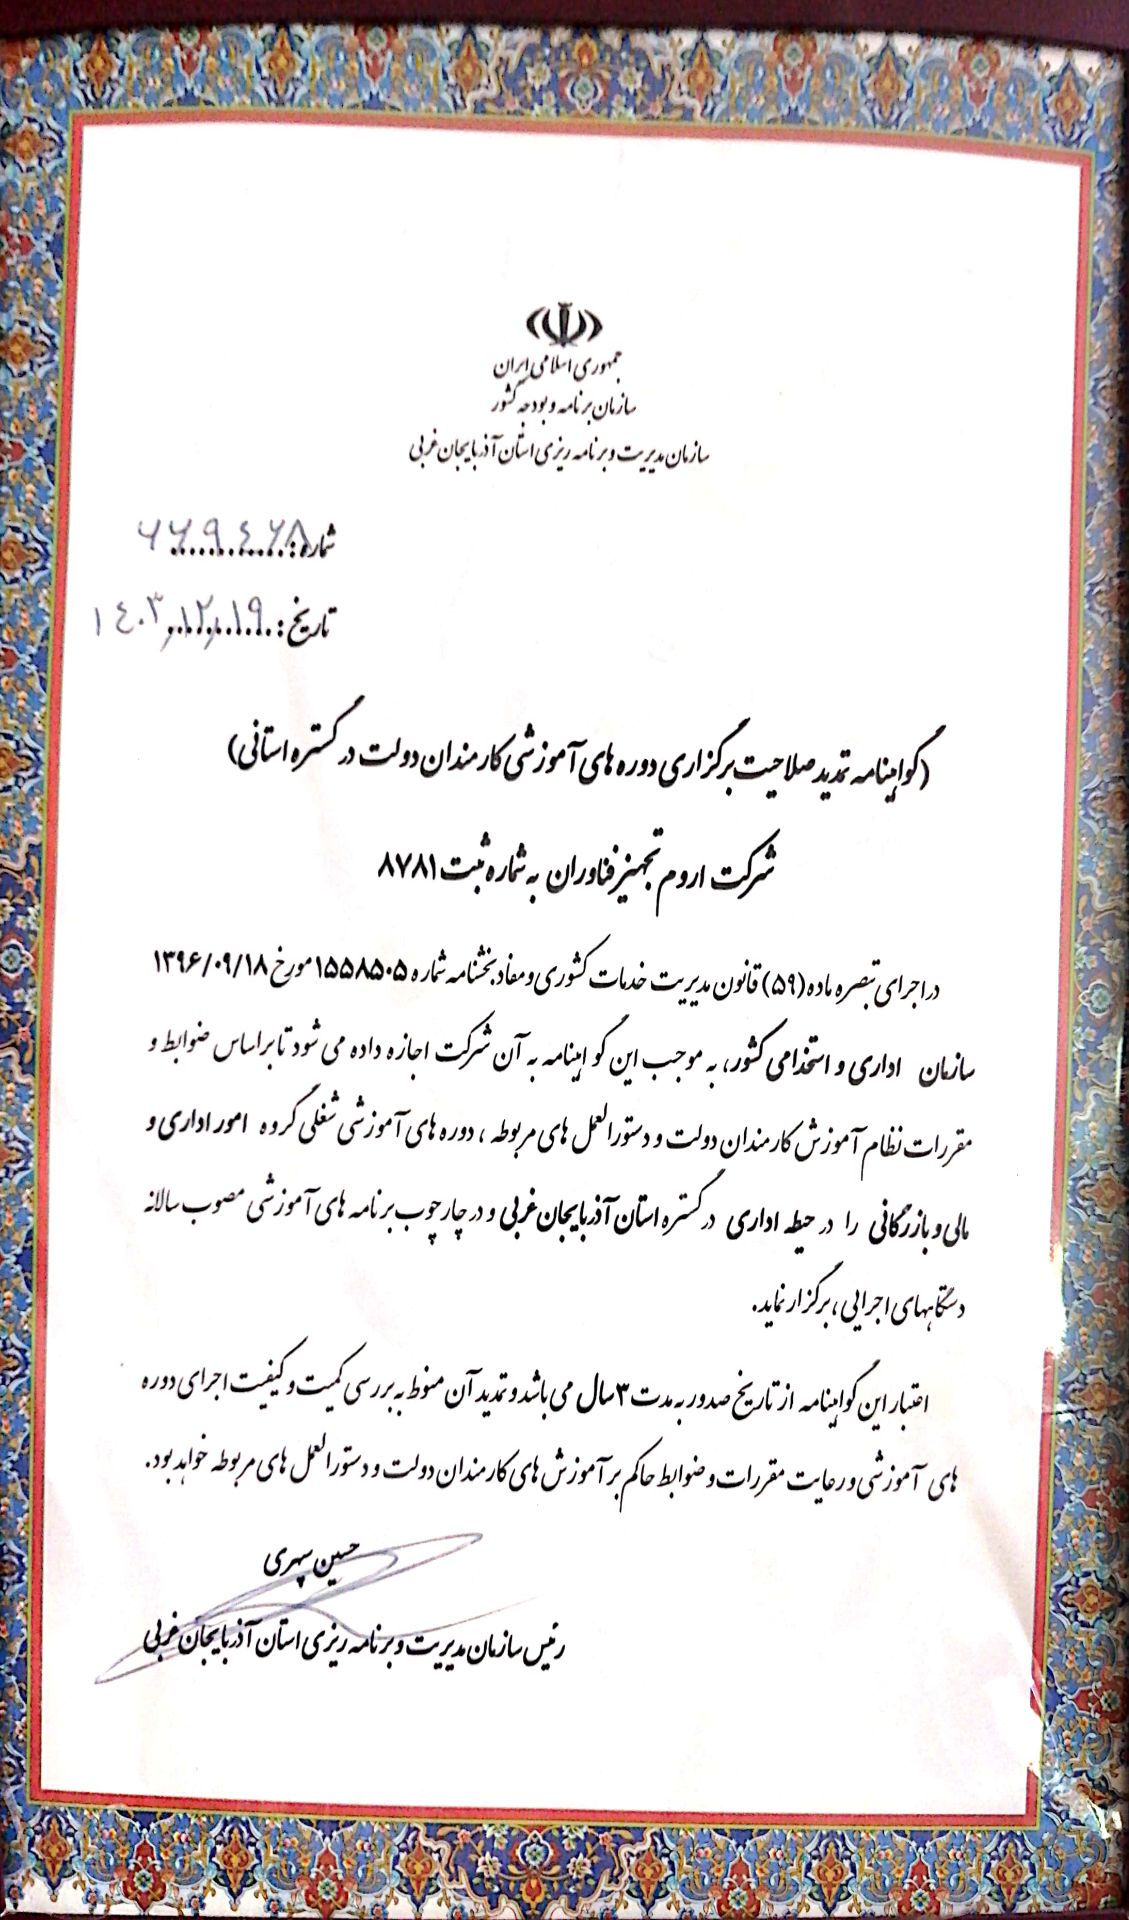 جمهوری اسلامی ایران
سازمان برنامه و بودجه کشور
سازمان مدیریت و برنامه ریزی استان آذربایجان غربی
شماره: ۶۶۹۴۶۸
تاریخ: ۱۴۰۳,۱۲,۱۹
(گواهینامه تمدید صلاحیت برگزاری دوره های آموزشی کارمندان دولت در گستره استانی)
شرکت اروم تجهیز فناوران به شماره ثبت ۸۷۸۱
در اجرای تبصره ماده (۵۹) قانون مدیریت خدمات کشوری و مفاد بخشنامه شماره ۱۵۵۸۵۰۵ مورخ ۱۳۹۶/۰۹/۱۸
سازمان اداری و استخدامی کشور، به موجب این گواهینامه به آن شرکت اجازه داده می شود تا براساس ضوابط و
مقررات نظام آموزش کارمندان دولت و دستورالعمل های مربوطه ، دوره های آموزشی شغلی گروه امور اداری و
مالی و بازرگانی را در حیطه اداری در گستره استان آذربایجان غربی و در چارچوب برنامه های آموزشی مصوب سالانه
دستگاههای اجرایی ، برگزار نماید.
اعتبار این گواهینامه از تاریخ صدور به مدت ۳ سال می باشد و تمدید آن منوط به بررسی کمیت و کیفیت اجرای دوره
های آموزشی و رعایت مقررات و ضوابط حاکم بر آموزش های کارمندان دولت و دستورالعمل های مربوطه خواهد بود.
حسین سپهری
رئیس سازمان مدیریت و برنامه ریزی استان آذربایجان غربی